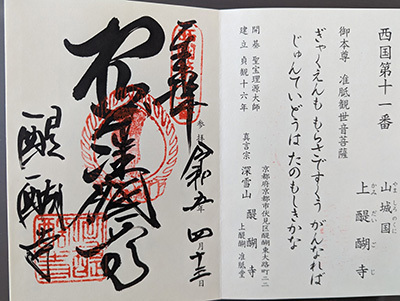 西国第十一番
山城国
やましろのくに
上醍醐寺
かみだいごじ
御本尊 准胝観世音菩薩
ぎゃくえんも もらさですくう がんなれば
じゅんていどうは たのもしきかな
開基 聖宝理源大師
建立 貞観十六年
京都府京都市伏見区醍醐東大路町二二
真言宗 深雪山 醍醐寺
上醍醐 准胝堂
参拝 令和五年四月十三日
醍醐寺